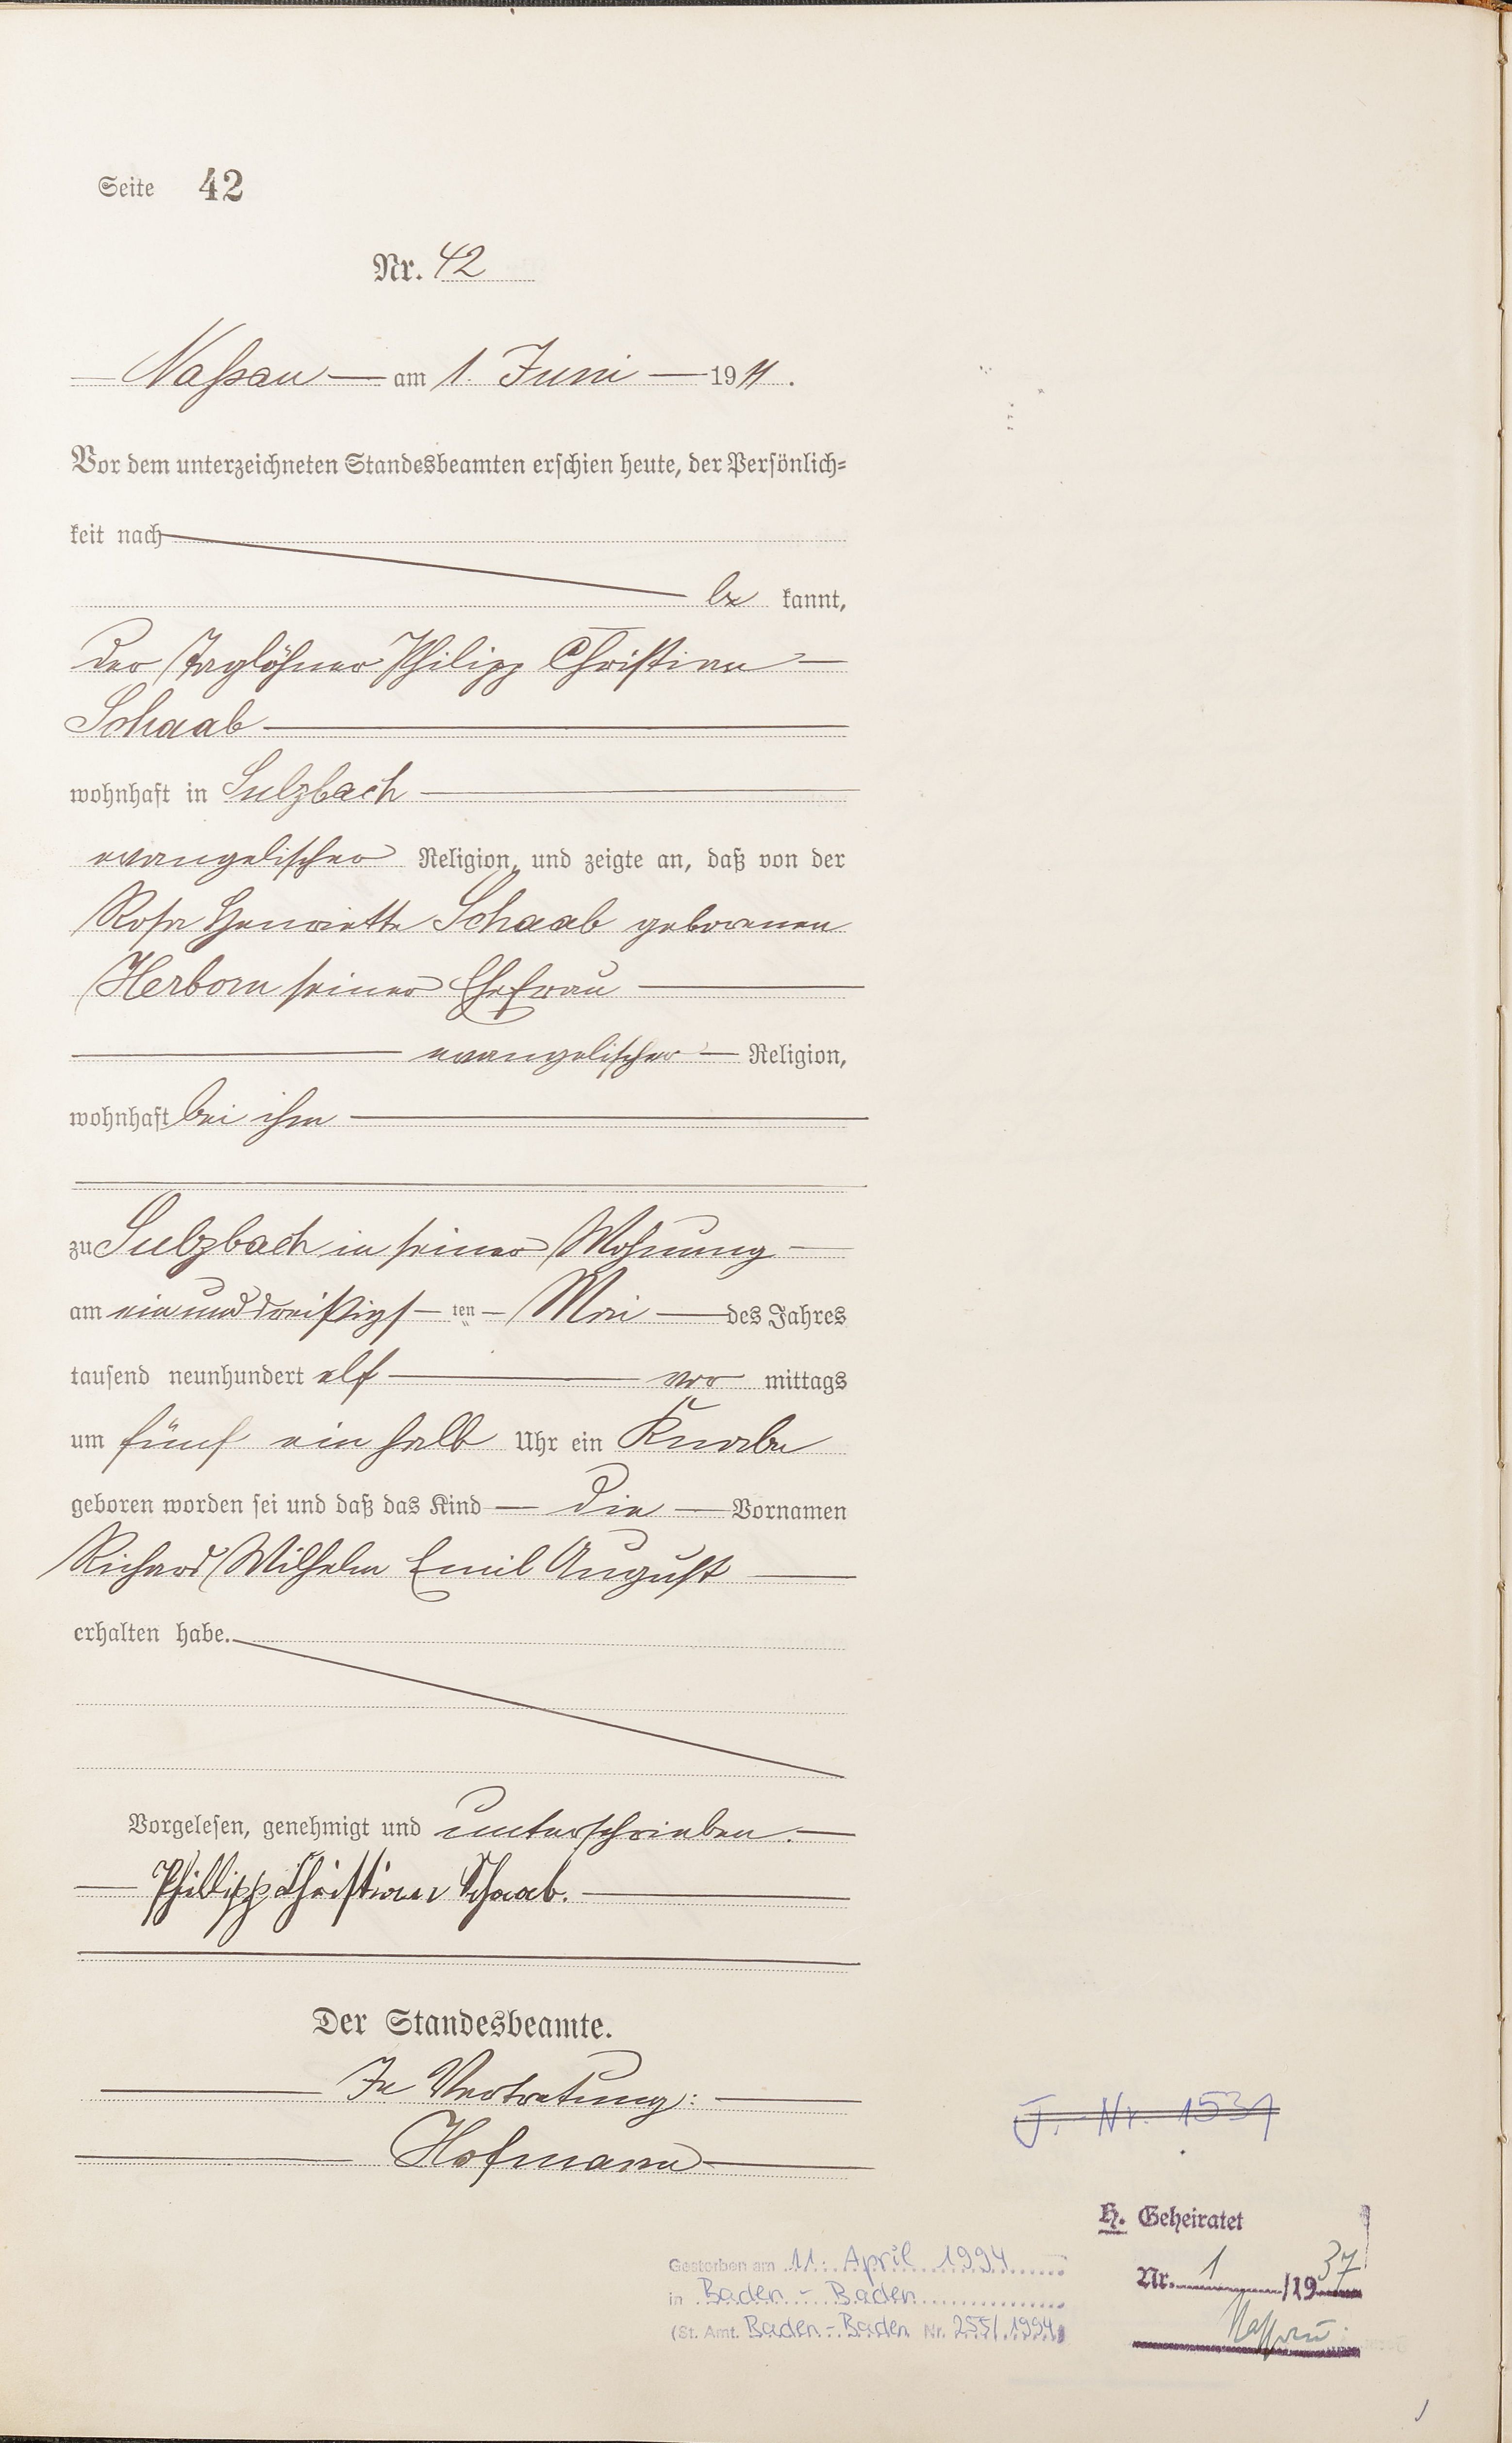 Seite 42
Nr. 42
Nassau am 1. Juni 1911.
Vor dem unterzeichneten Standesbeamten erschien heute, der Persönlich-
keit nach
be kannt,
der Taglöhner Philipp Christian
Schaab
wohnhaft in Sulzbach
evangelischer Religion, und zeigte an, daß von der
Rosa Henriette Schaab geborenen
Herborn seiner Ehefrau
evangelischer Religion,
wohnhaft bei ihm
zu Sulzbach in seiner Wohnung
am einunddreißigsten Mai des Jahres
tausend neunhundert elf vor mittags
um fünf ein halb Uhr ein Knabe
geboren worden sei und daß das Kind die Vornamen
Richard Wilhelm Emil August
erhalten habe.
Vorgelesen, genehmigt und unterschrieben.
Phillipp Christian Schaab.
Der Standesbeamte.
In Vertretung:
Hofmann
J. Nr. 1531
H. Geheiratet
Nr. 1 /1937
Nassau
Gestorben am 11. April 1994
in Baden-Baden
(St. Amt. Baden-Baden Nr. 255/1994)